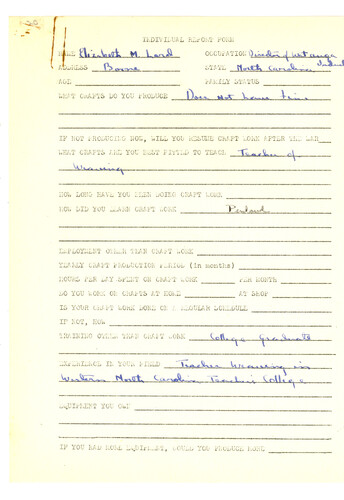 INDIVIDUAL REPORT FORM
NAME Elizabeth M. Lord OCCUPATION Director of Watauga Indust
ADDRESS Boone STATE North Carolina
AGE FAMILY STATUS
WHAT CRAFTS DO YOU PRODUCE Does not have time
IF NOT PRODUCING NOW, WILL YOU RESUME CRAFT WORK AFTER THE WAR
WHAT CRAFTS ARE YOU BEST FITTED TO TEACH Teacher of
Weaving
HOW LONG HAVE YOU BEEN DOING CRAFT WORK
HOW DID YOU LEARN CRAFT WORK Penland
EMPLOYMENT OTHER THAN CRAFT WORK
YEARLY CRAFT PRODUCTION PERIOD (in months)
HOURS PER DAY SPENT ON CRAFT WORK PER MONTH
DO YOU WORK ON CRAFTS AT HOME AT SHOP
IS YOUR CRAFT WORK DONE ON A REGULAR SCHEDULE
IF NOT, HOW
TRAINING OTHER THAN CRAFT WORK College graduate
EXPERIENCE IN YOUR FIELD Teacher Weaving in
Western North Carolina Teachers College
EQUIPMENT YOU OWN
IF YOU HAD MORE EQUIPMENT, WOULD YOU PRODUCE MORE